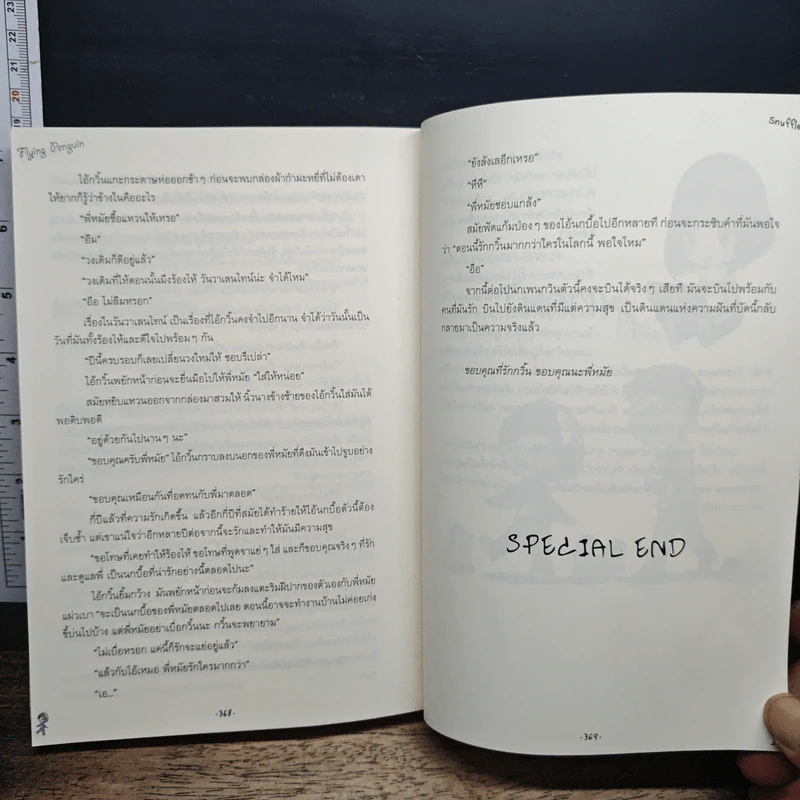 Flying Penguin
ไอ้กวิ้นแกะกระดาษห่อออกช้าๆ ก่อนจะพบกล่องผ้ากำมะหยี่ที่ไม่ต้องเดา
ให้ยากก็รู้ว่าข้างในคืออะไร
“พี่หมัยซื้อแหวนให้เหรอ”
“อืม”
“วงเดิมก็ดีอยู่แล้ว”
“วงเดิมที่ให้ตอนนั้นมึงร้องไห้ วันวาเลนไทน์น่ะ จำได้ไหม”
“อือ ไม่ลืมหรอก”
เรื่องในวันวาเลนไทน์ เป็นเรื่องที่ไอ้กวิ้นคงจำไปอีกนาน จำได้ว่าวันนั้นเป็น
วันที่มันทั้งร้องไห้และดีใจไปพร้อมๆ กัน
“ปีนี้ครบรอบก็เลยเปลี่ยนวงใหม่ให้ ชอบรึเปล่า”
ไอ้กวิ้นพยักหน้าก่อนจะยื่นมือไปให้พี่หมัย “ใส่ให้หน่อย”
สมัยหยิบแหวนออกจากกล่องมาสวมให้ นิ้วนางข้างซ้ายของไอ้กวิ้นใส่มันได้
พอดิบพอดี
“อยู่ด้วยกันไปนานๆ นะ”
“ขอบคุณครับพี่หมัย” ไอ้กวิ้นกราบลงบนอกของพี่หมัยที่ดึงมันเข้าไปจูบอย่าง
รักใคร่
“ขอบคุณเหมือนกันที่อดทนกับพี่มาตลอด”
กี่ปีแล้วที่ความรักเกิดขึ้น แล้วอีกกี่ปีที่สมัยได้ทำร้ายให้ไอ้นกบื้อตัวนี้ต้อง
เจ็บช้ำ แต่เขาแน่ใจว่าอีกหลายปีต่อจากนี้จะรักและทำให้มันมีความสุข
“ขอโทษที่เคยทำให้ร้องไห้ ขอโทษที่พูดจาแย่ๆ ใส่ และก็ขอบคุณจริงๆ ที่รัก
และดูแลพี่ เป็นนกบื้อที่น่ารักอย่างนี้ตลอดไปนะ”
ไอ้กวิ้นยิ้มกว้าง มันพยักหน้าก่อนจะก้มลงแตะริมฝีปากของตัวเองกับพี่หมัย
แผ่วเบา “จะเป็นนกบื้อของพี่หมัยตลอดไปเลย ตอนนี้อาจจะทำงานบ้านไม่ค่อยเก่ง
ขี้บ่นไปบ้าง แต่พี่หมัยอย่าเบื่อกวิ้นนะ กวิ้นจะพยายาม”
“ไม่เบื่อหรอก แค่นี้ก็รักจะแย่อยู่แล้ว”
“แล้วกับไอ้เหมอ พี่หมัยรักใครมากกว่า”
“เอ...”
-368-
Snuffle
“ยังลังเลอีกเหรอ”
“หึหึ”
“พี่หมัยชอบแกล้ง”
สมัยฟัดแก้มป่องๆ ของไอ้นกบื้อไปอีกหลายที ก่อนจะกระซิบคำที่มันพอใจ
ว่า “ตอนนี้รักกวิ้นมากกว่าใครในโลกนี้ พอใจไหม”
“อือ”
จากนี้ต่อไปนกเพนกวินตัวนี้คงจะบินได้จริงๆ เสียที มันจะบินไปพร้อมกับ
คนที่มันรัก บินไปยังดินแดนที่มีแต่ความสุข เป็นดินแดนแห่งความฝันที่บัดนี้กลับ
กลายมาเป็นความจริงแล้ว
ขอบคุณที่รักกวิ้น ขอบคุณนะพี่หมัย
SPECIAL END
-369-